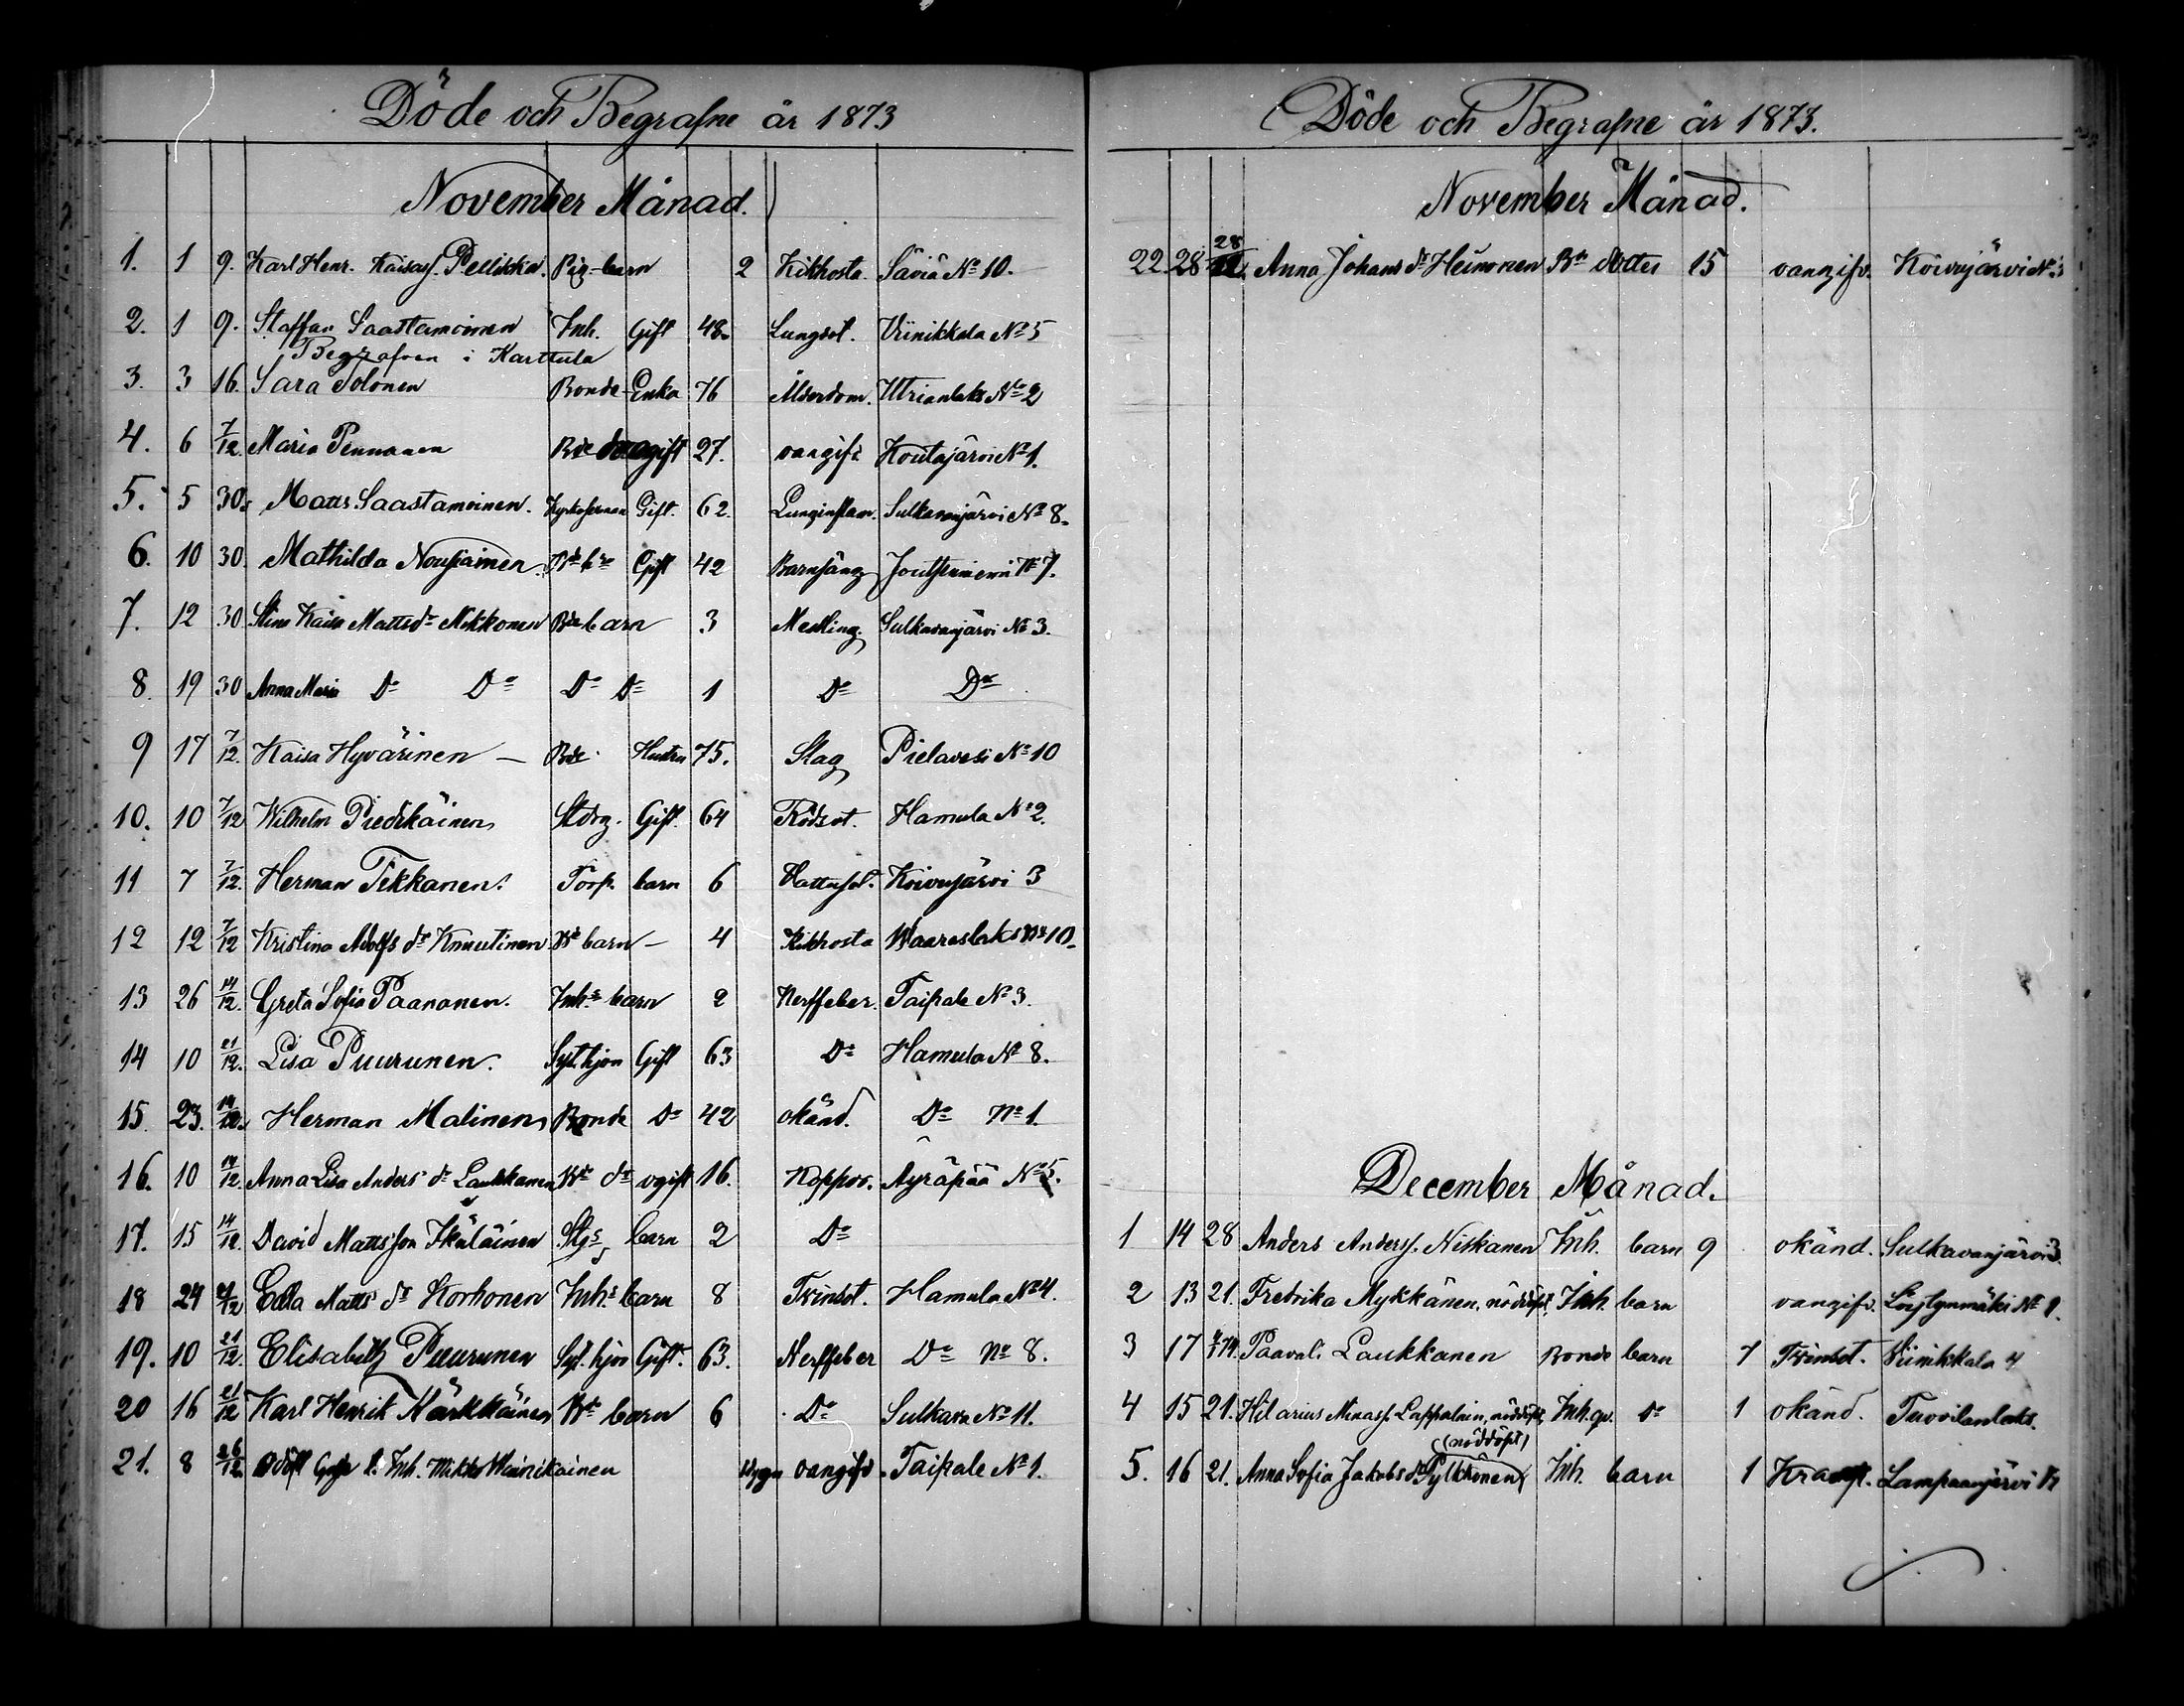 Döde och Begrafne år 1873
November Månad.
1. 1 9. Karl Henr. Kaisass. Pellikka. Pig-barn 2 Kikhosta. Säviä No 10.
2. 1 9. Staffan Saastamoinen Inh. Gift 48. Lungsot. Viinikkala No 5
Begrafven i Karttula
3. 3 16. Sara Tolonen Bonde-Enka 76 Ålderdom. Utrianlaks No 2
4. 6 7/12. Maria Pennanen Bde ogift 27. oangifv. Koutajärvi No 1.
5. 5 30. Matts Saastamoinen. Gift. 62. Lunginflam. Sulkavanjärvi No 8.
6. 10 30. Mathilda Nousiainen Gift 42 Barnsäng Joutsenniemi No 7.
7. 12 30 Stina Kaisa Mattsdr Nikkonen Bde barn 3 Messling. Sulkavanjärvi No 3.
8. 19 30 Anna Maria Do Do Do Do 1 Do Do
9 17 7/12. Kaisa Hyvärinen — Bde Hustru 75. Slag Pielavesi No 10
10. 10 7/12 Wilhelm Piedikäinen Stdrg. Gift. 64 Rödsot. Hamula No 2.
11 7 7/12. Herman Tikkanen. Torp. barn 6 Vattusot. Koivujärvi 3
12 12 7/12 Kristina Adolfs dr Knuutinen Bde barn — 4 Kikhosta Waaraslaks No 10.
13 26 14/12. Greta Sofia Paananen. Inh:s barn 2 Nerffeber. Taipale No 3.
14 10 21/12. Lisa Puurunen. Syt.hjon Gift 63 Do Hamula No 8.
15 23. 14/12. Herman Malinen Bonde Do 42 okänd. Do No 1.
16. 10 14/12. Anna Lisa Anders dr Laukkanen Bde dr ogift 16. Koppor. Äyräpää No 5.
17. 15 14/12. David Mattsson Ikäläinen Stgs barn 2 Do
18 24 21/12 Edla Matts dr Korhonen Inh:s barn 8 Tvinsot. Hamula No 4.
19. 10 21/12. Elisabeth Puurunen Syt. hjon Gift. 63. Nerffeber Do No 8.
20 16 21/12 Karl Henrik Kärkkäinen Bde barn 6 Do Sulkava No 11.
21. 8 26/12. Odöpt Gosse f. Inh. Mikko Wainikainen oangifv. Taipale No 1.
Döde och Begrafne år 1873.
November Månad.
28
22 28 Anna Johans dr Heinonen Bde dotter 15 oangifv. Koivujärvi No 3
December Månad.
1 14 28 Anders Anderss. Niskanen Inh. barn 9 okänd. Sulkavanjärvi 3.
2 13 21. Fredrika Mykkänen, nöddöpt. Inh. barn oangifv. Löytynmäki No 1.
3 17 Paavali Laukkanen Bonde barn 7 Tvinsot. Viinikkala 4
4 15 21. Hilarius Minass. Lappalain, nöddöpt, Inh. qv. Do 1 okänd. Tuovilanlaks.
(nöddöpt)
5. 16 21. Anna Sofia Jakobs dr Pylkkönen Inh. barn 1 Kramp. Lampaanjärvi